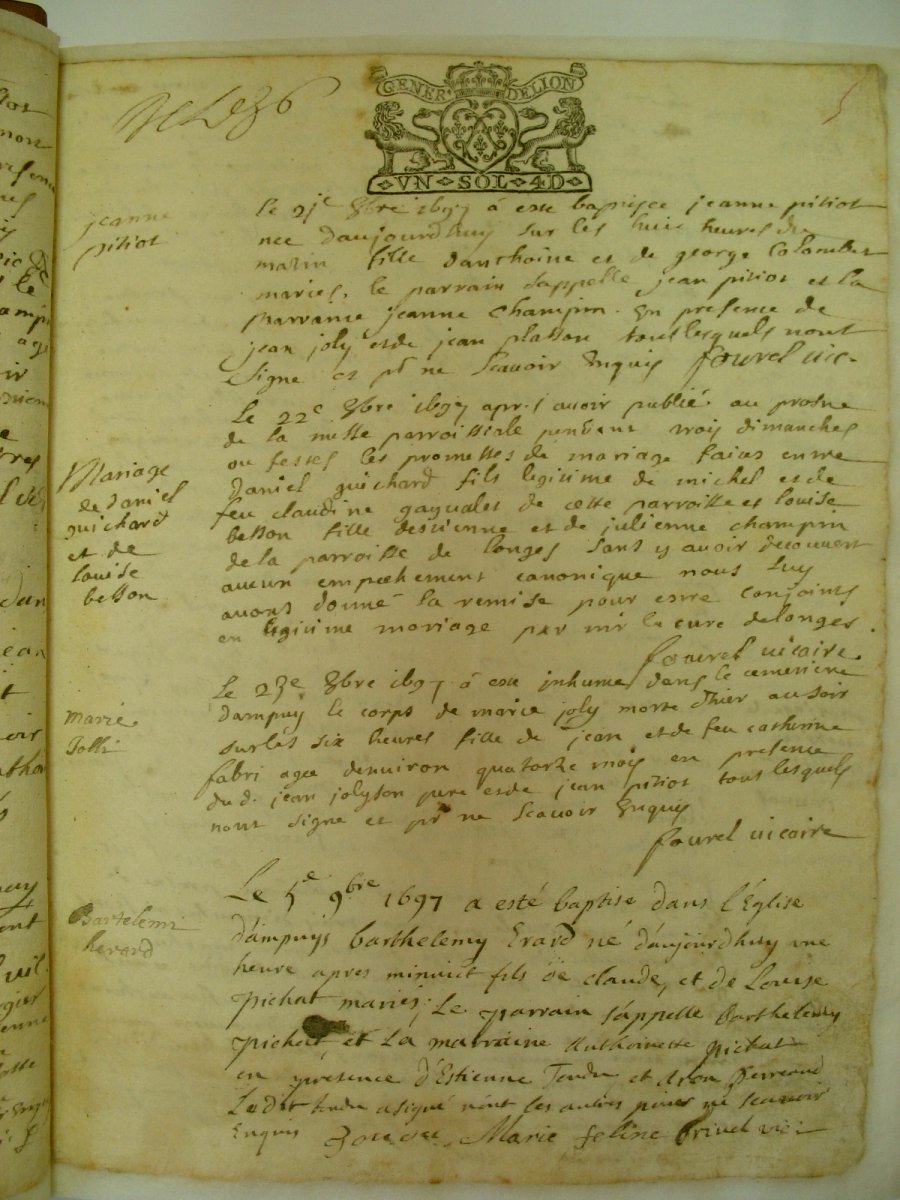 GENER. DELION
UN SOL 4D
5
jeanne
pitiot
Le 21e 8bre 1697 a este baptisee jeanne pitiot
nee daujourdhuy sur les huit heures du
matin fille danthoine et de george Colombet
maries. le parrain sappelle jean pitiot et la
marraine jeanne champin. En presence de
jean joly et de jean platton tous lesquels nont
signe et pt ne scavoir Enquis fourel vic.
Mariage
de daniel
guichard
et de
louise
besson
Le 22e 8bre 1697 apres avoir publié au prosne
de la messe parroissiale pendant trois dimanches
ou festes les promesses de mariage faites entre
Daniel guichard fils legitime de michel et de
feu claudine de cette parroisse et louise
besson fille destienne et de julienne champin
de la parroisse de longes sans y avoir decouvert
aucun empechement canonique nous luy
avons donné la remise pour estre conjoints
en legitime mariage par mr le cure de longes
fourel vicaire
marie
Jolli
Le 23e 8bre 1697 a este inhume dans le cemetiere
dampuy le corps de marie joly morte dhier au soir
sur les six heures fille de jean et de feu catherine
fabri agee denviron quatorze mois en presence
du d. jean joly son pere et de jean pitiot tous lesquels
nont signe et pt ne scavoir Enquis
fourel vicaire
Bartelemi
herard
Le 5e 9bre 1697 a esté baptise dans l'Église
d'ampuys barthelemy Erard né d'aujourdhuy une
heure apres minuict fils de claude, et de Louise
pichat mariés; Le parrain s'appelle barthelemy
pichat et La marraine Anthoinette pichat
en presence d'Estienne Tendu et
Ledit tendu a signé non les autres pour ne scavoir
Enquis Marie